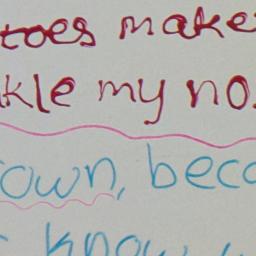 toes make
kle my no
own, bec
know